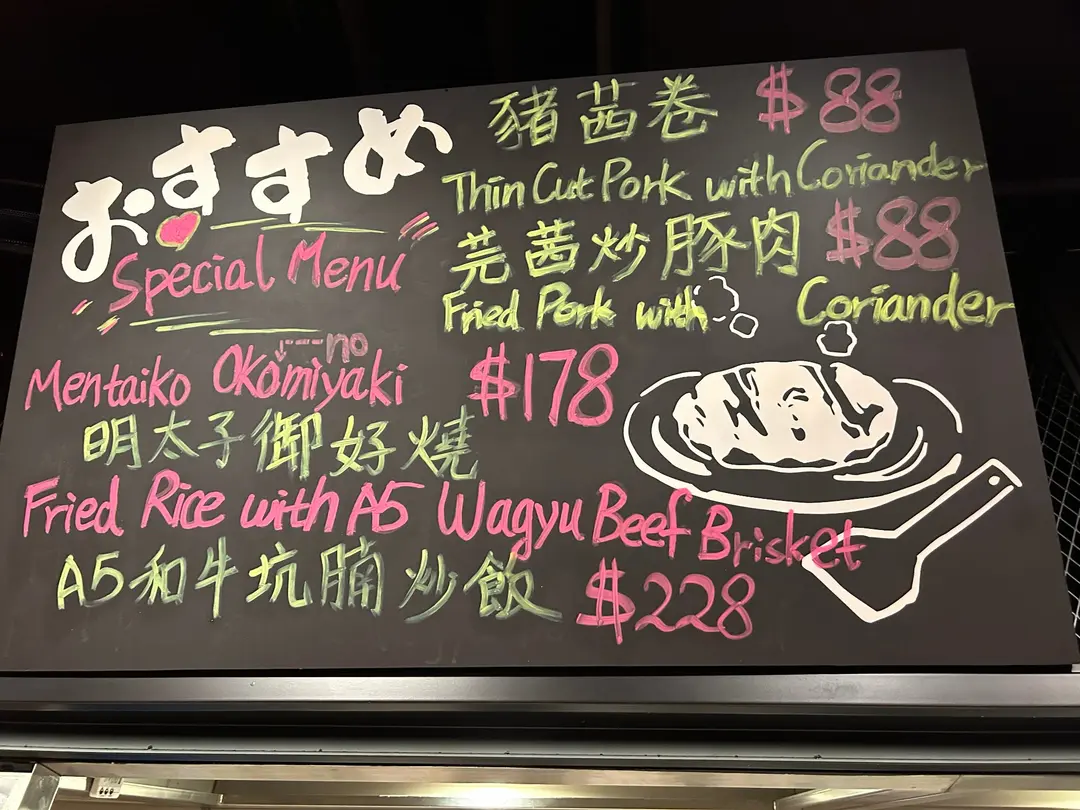 おすすめ
Special Menu
豬茜卷 $88
Thin Cut Pork with Coriander
芫茜炒豚肉 $88
Fried Pork with Coriander
no
Mentaiko Okomiyaki $178
明太子御好燒
Fried Rice with A5 Wagyu Beef Brisket
A5和牛坑腩炒飯 $228